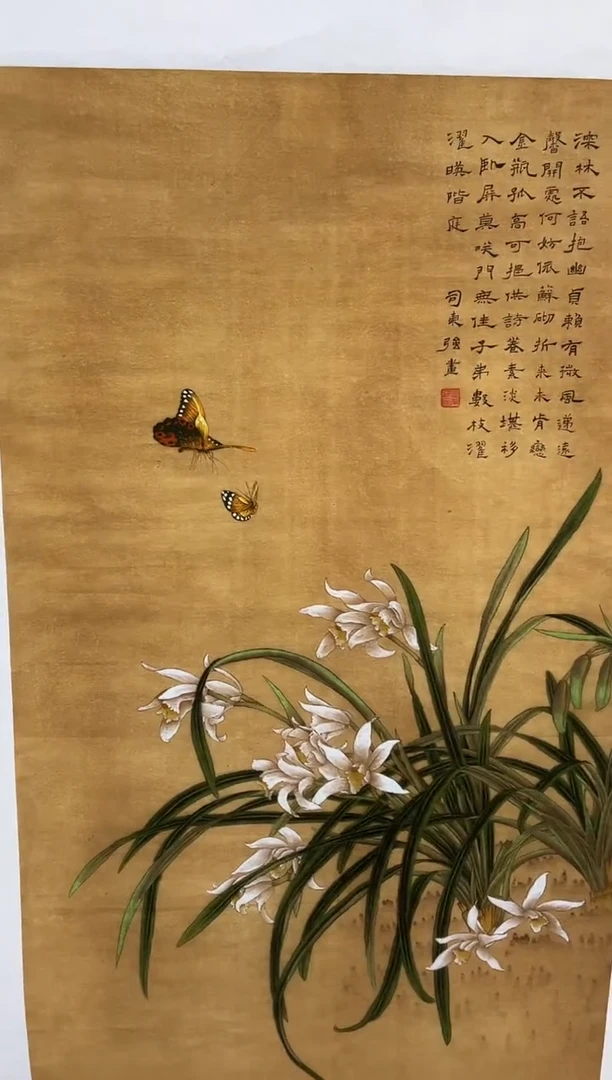 深林不語抱幽貞賴有微風遞遠
馨開處何妨依蘚砌折來未肯戀
金瓶孤高可挹供詩卷素淡堪移
入卧屏莫咲門無佳子弟數枝濯
濯暎階庭 司東強畫